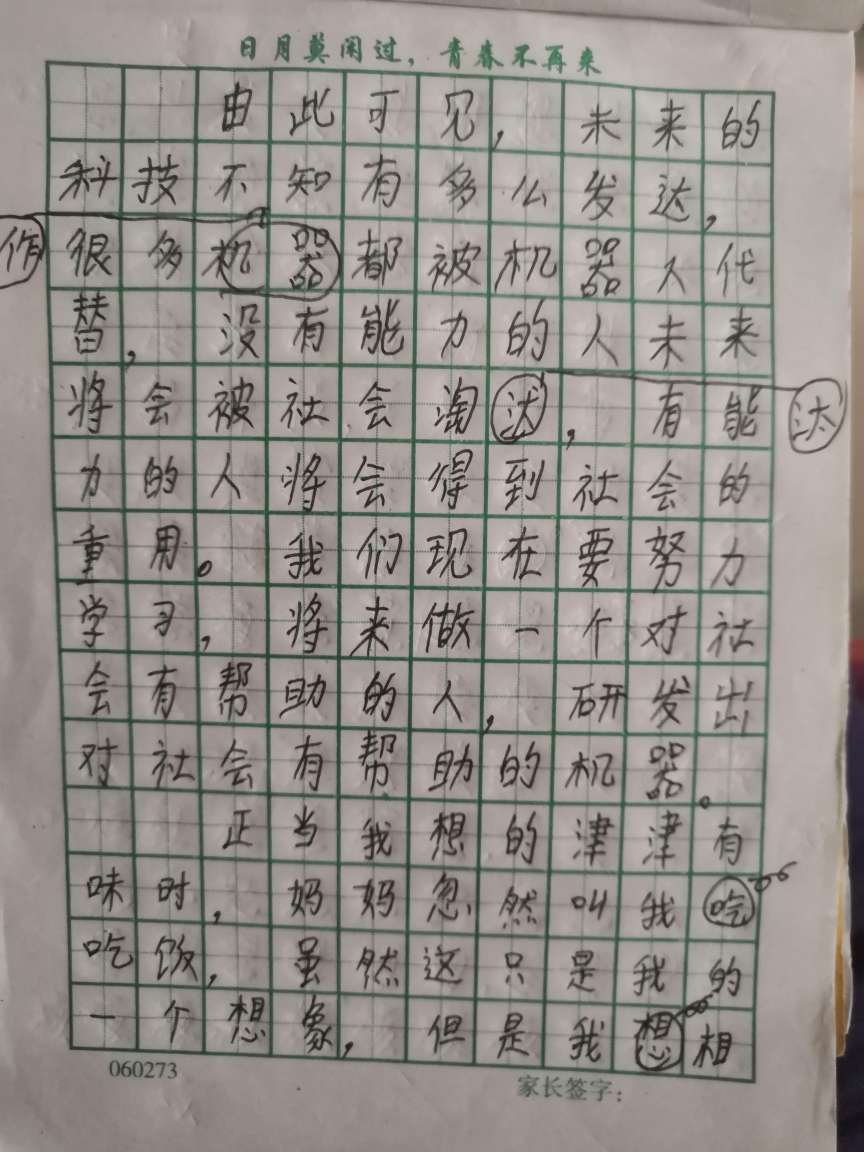 日月莫闲过，青春不再来
由此可见，未来的
科技不知有多么发达，
作
很多机器都被机器人代
替，没有能力的人未来
将会被社会淘汰，有能
汰
力的人将会得到社会的
重用。我们现在要努力
学习，将来做一个对社
会有帮助的人，研发出
对社会有帮助的机器。
正当我想的津津有
味时，妈妈忽然叫我吃
吃饭，虽然这只是我的
一个想象，但是我想相
060273
家长签字：